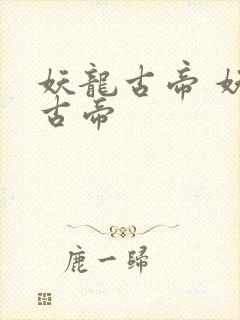 妖龍古帝 妖
古帝
鹿一歸